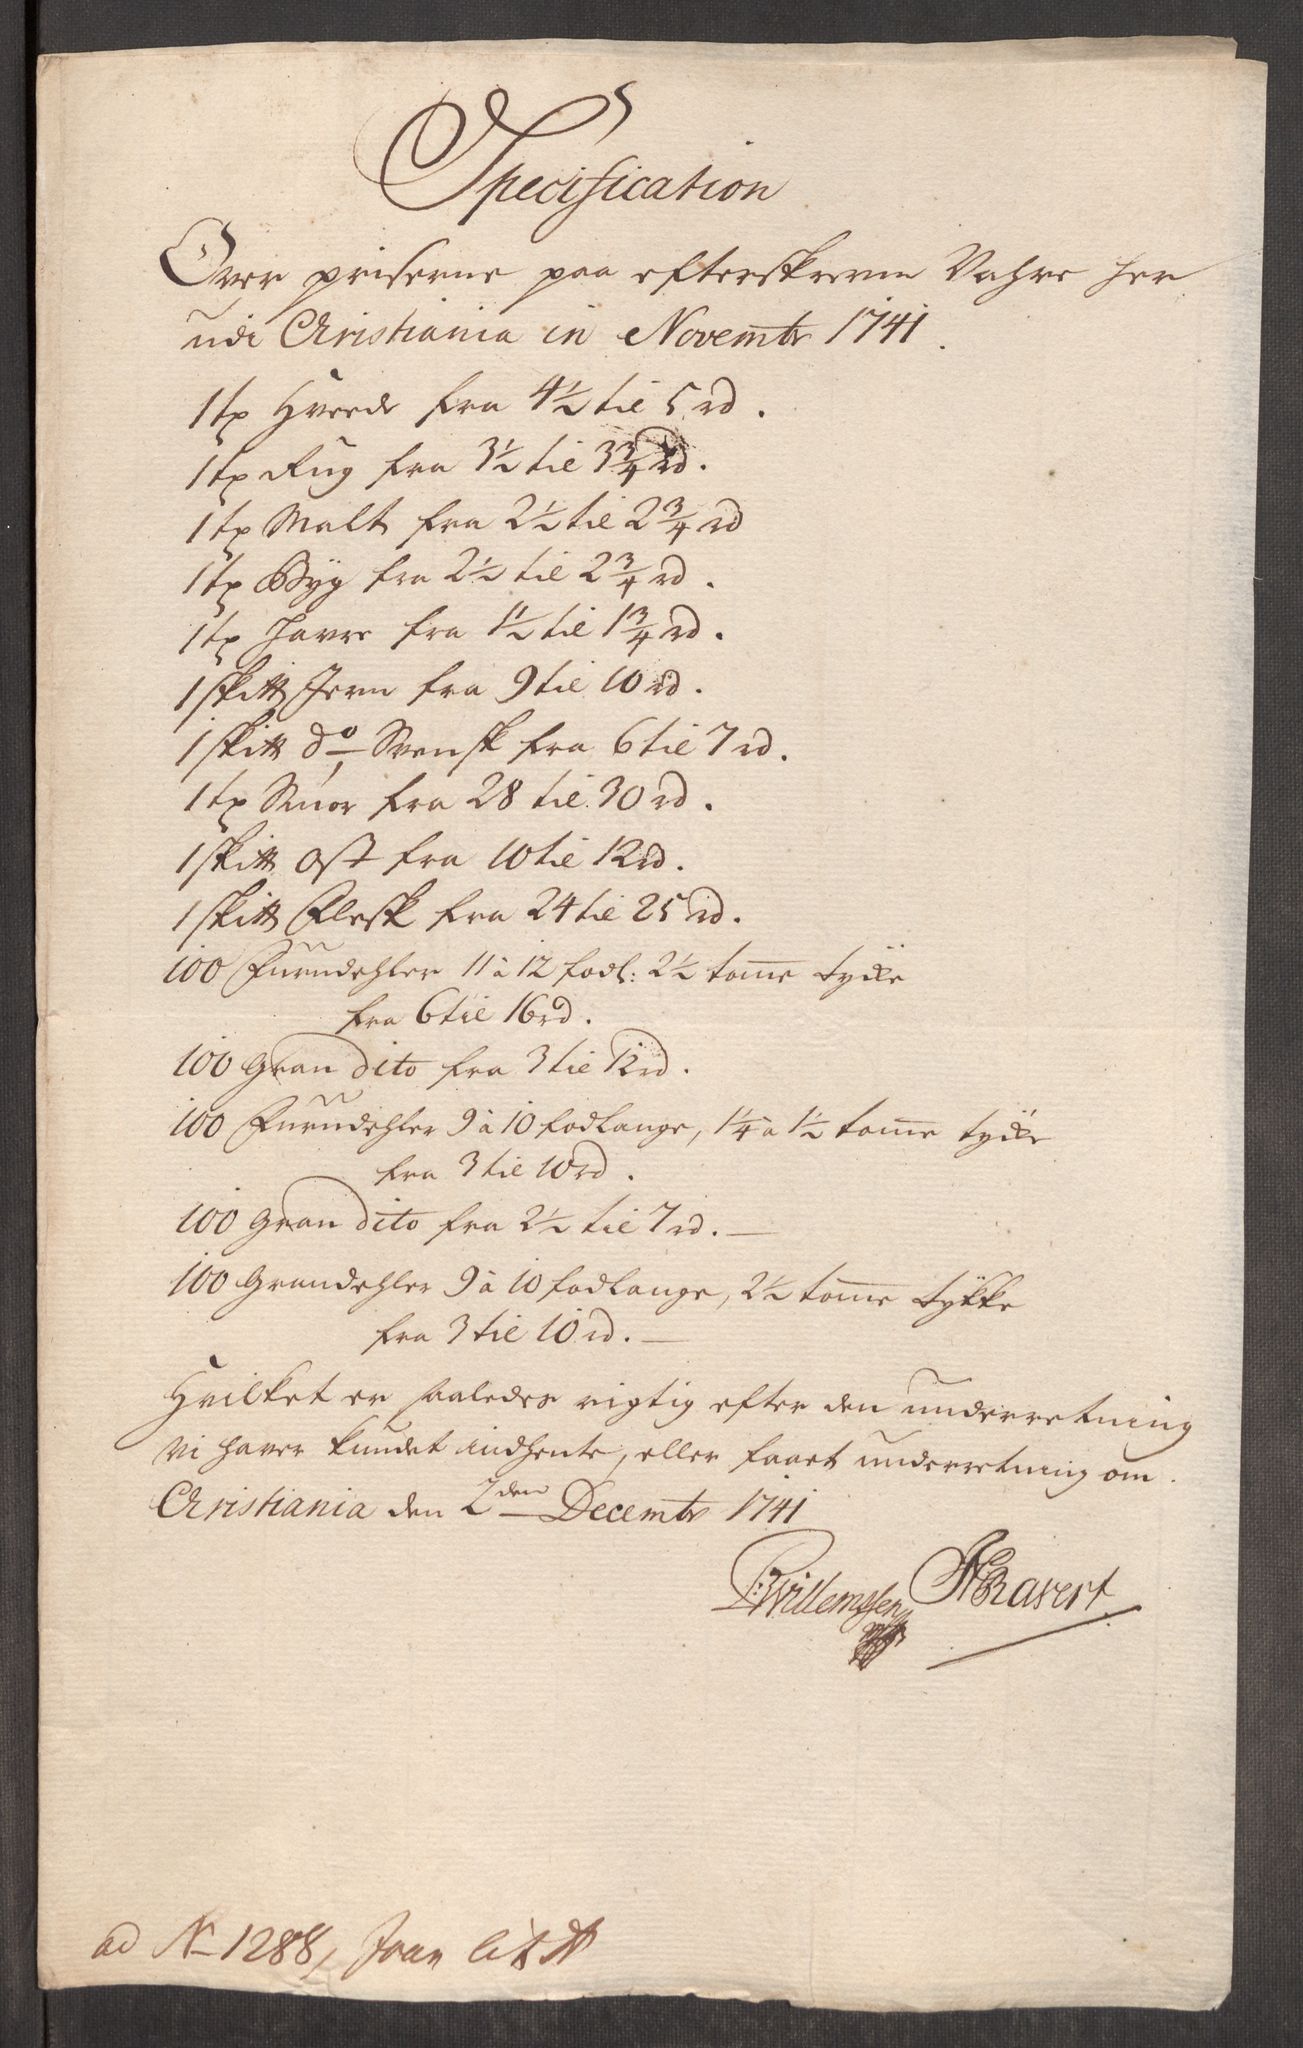 Specification
Over priserne paa efterskrevne Vahre her
udi Christiania in Novembr 1741.
1 tp Hvede fra 4½ til 5 rd.
1 tp Rug fra 3½ til 3¾ rd.
1 tp Malt fra 2½ til 2¾ rd
1 tp Byg fra 2½ til 2¾ rd.
1 tp Havre fra 1½ til 1¾ rd.
1 sk℔ Jern fra 9 til 10 rd.
1 sk℔ do Svensk fra 6 til 7 rd.
1 tp Smør fra 28 til 30 rd.
1 sk℔ Ost fra 10 til 12 rd.
1 sk℔ Flesk fra 24 til 25 rd.
100 Furudehler 11 à 12 fodl: 2½ tomme tycke
fra 6 til 16 rd.
100 Gran dito fra 3 til 12 rd.
100 Furudehler 9 à 10 fodlange, 1¼ à 1½ tomme tycke
fra 3 til 10 rd.
100 Gran dito fra 2½ til 7 rd.
100 Grandehler 9 à 10 fodlange, 2½ tomme tykke
fra 3 til 10 rd.
Hvilket er saaledes rigtig efter den underretning
vi haver kundet indhente, eller faaet underretning om.
Christiania den 2den Decembr 1741
Willemssen Ravert
ad No 1288, lit A